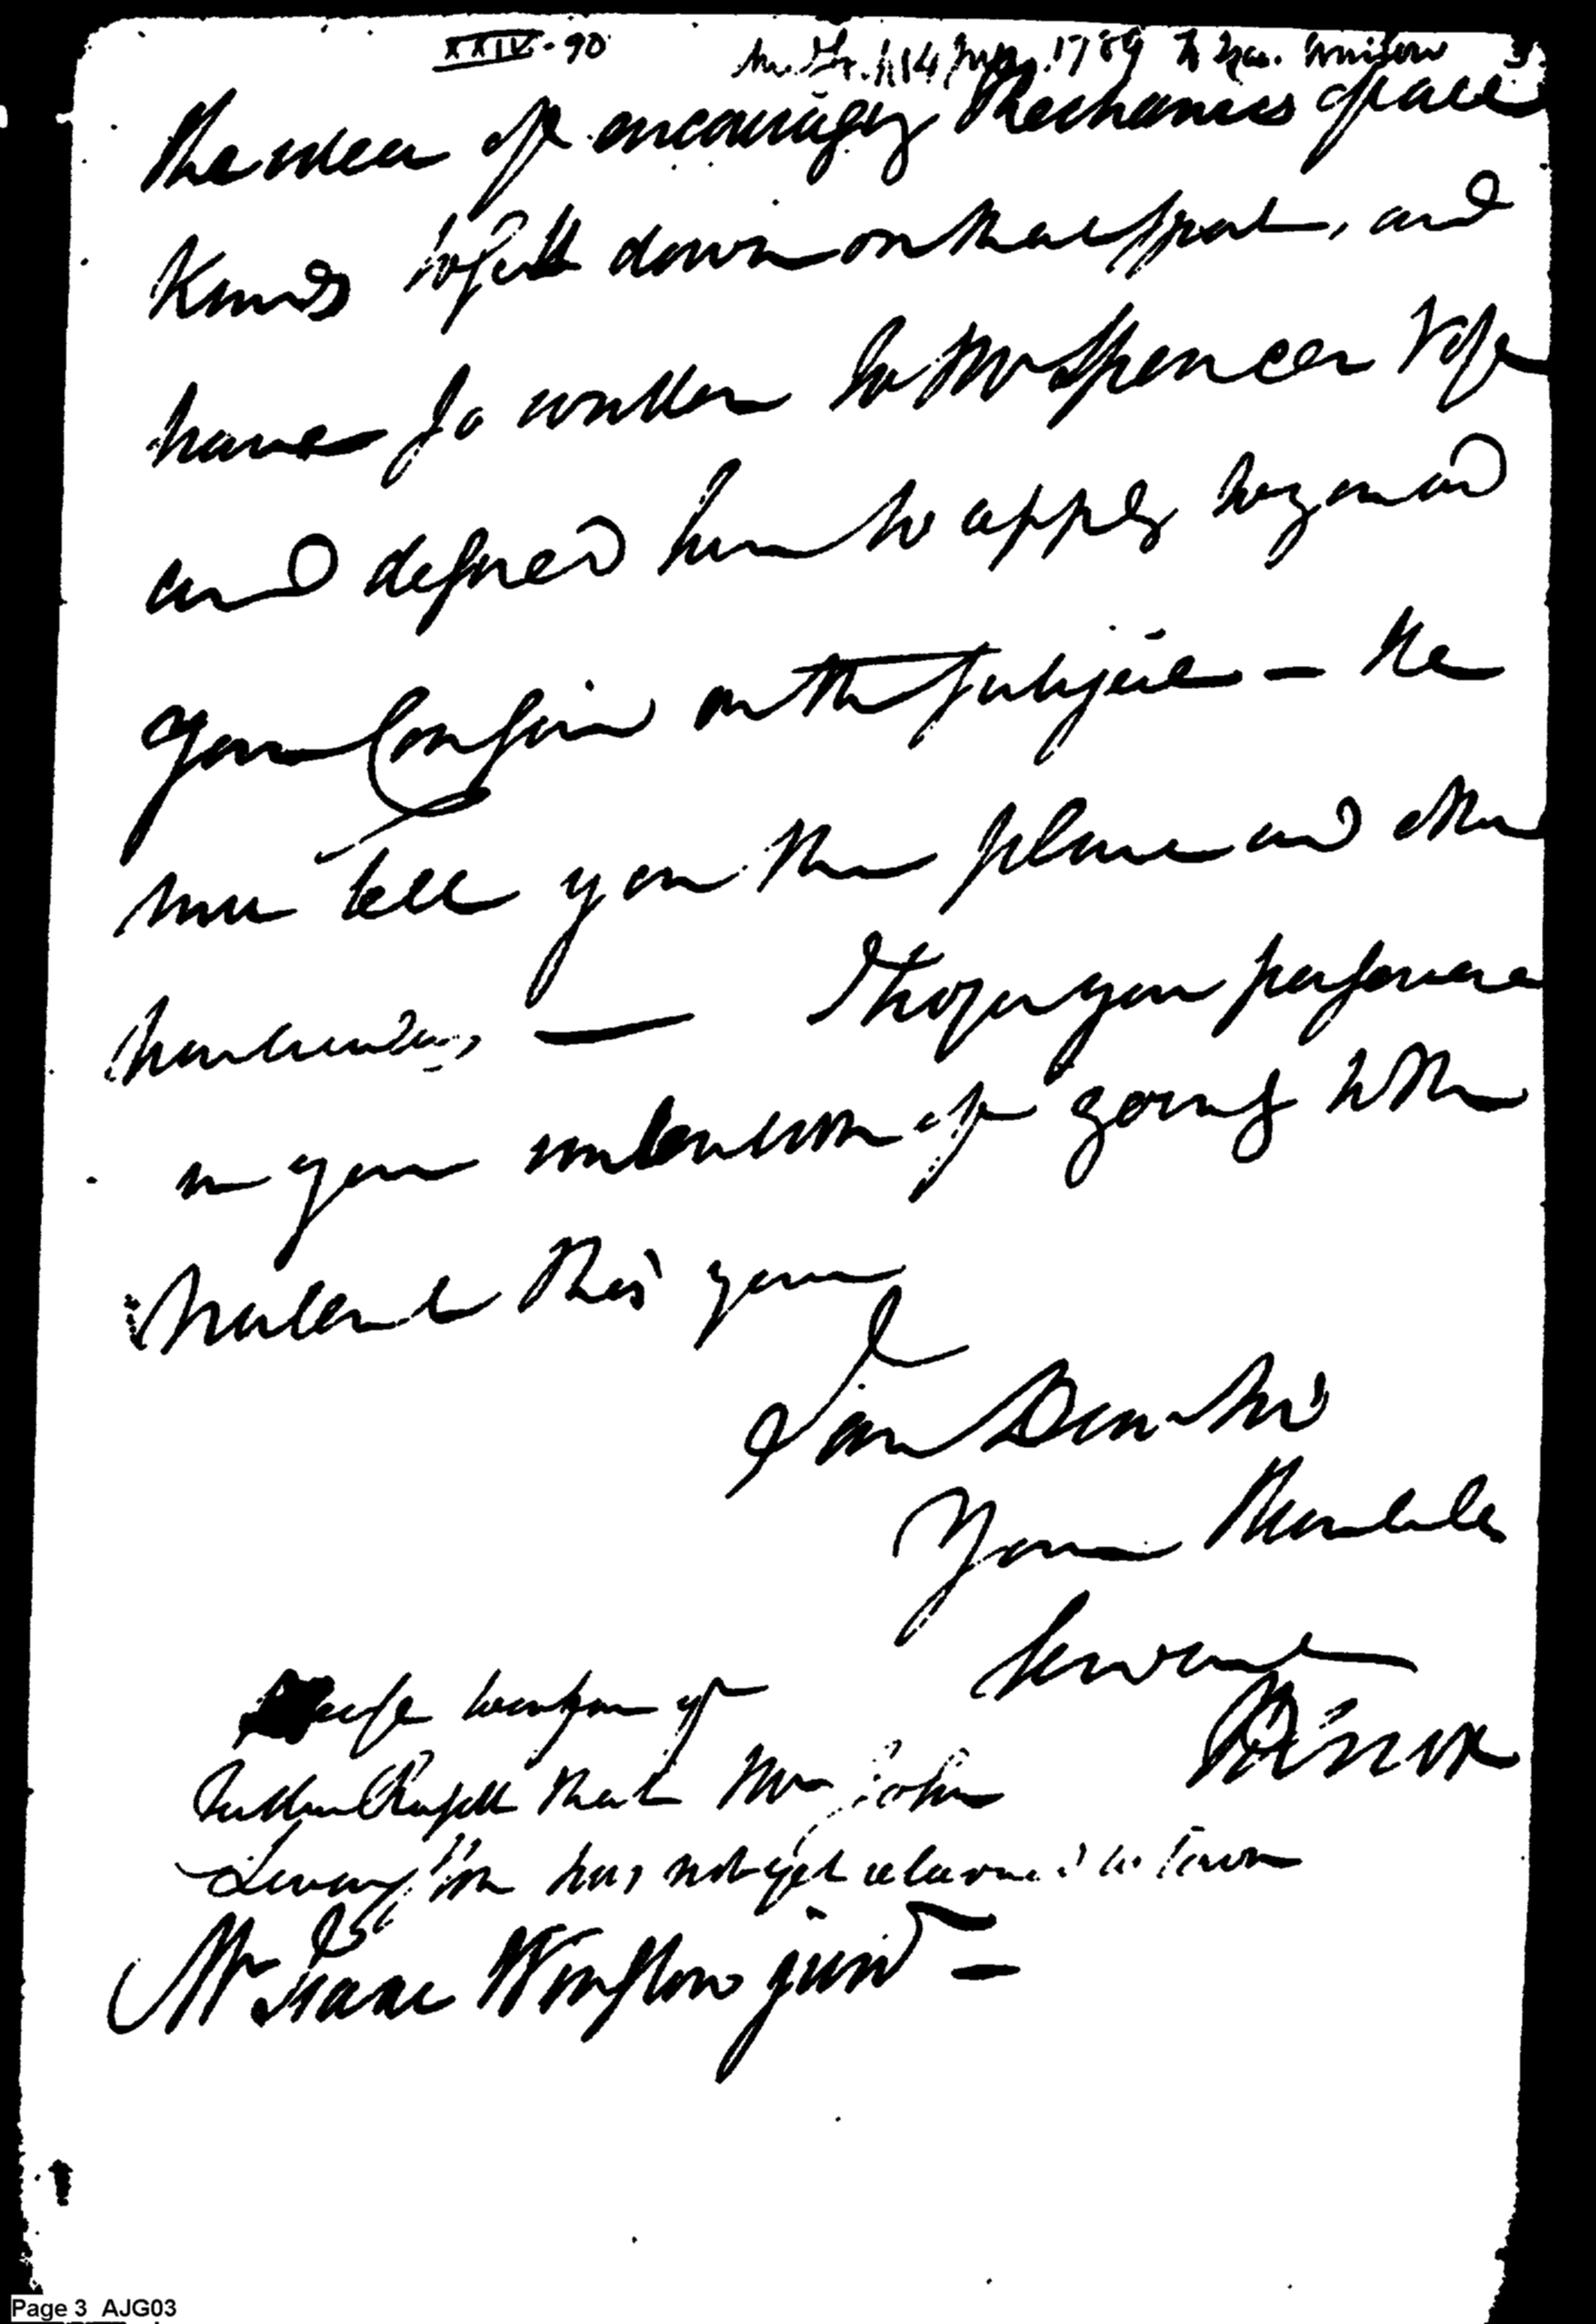 XXIV-90 1789 3
the idea of encouraging Mechanics of all
Kinds to settle down on that spot, and
have so written to Mr Spencer Vose
and desired him to apply to you and
your Cousin on the subject — he
will tell you the plan and other
particulars — I hope you persevere
in your intention of going to the
this year
I am Dear Sir
Your humble
Servant
HKnox
Please to inform
that Mr John
has not yet returned to town
Mr Isaac Winslow junr —
Page 3 AJG03